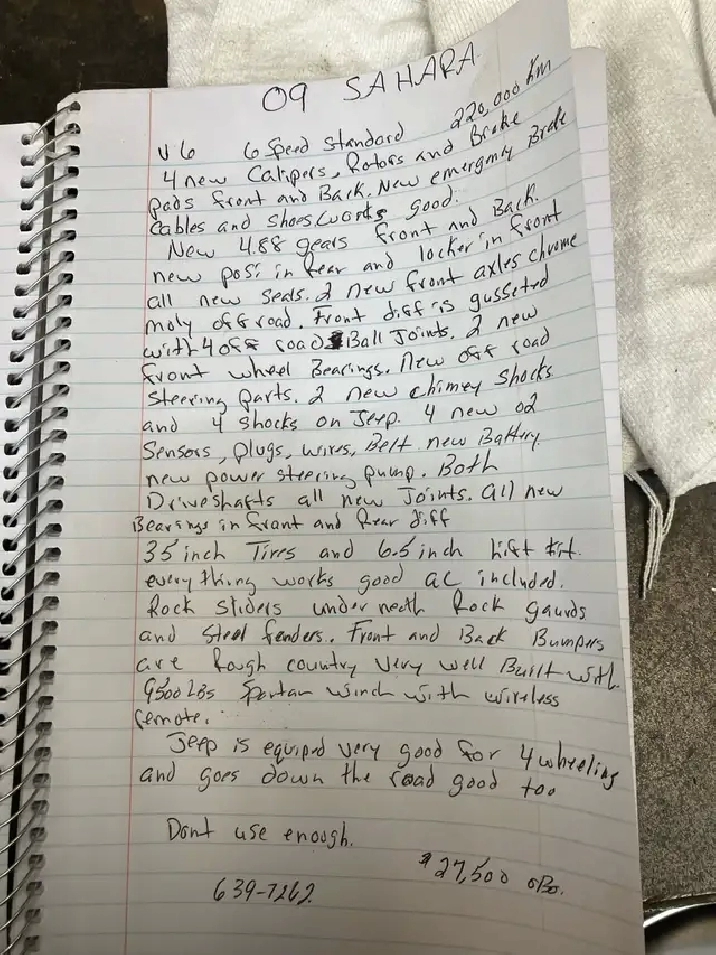 09 SAHARA
V6 6 Speed Standard 220,000 Km
4 new Calipers, Rotors and Brake
pads front and Back. New emergeny Brake
Cables and shoes works good.
New 4.88 gears front and Back.
new posi in Rear and locker in front
all new seals. 2 new front axles chrome
moly off road. Front diff is gusseted
with 4 off road Ball Joints. 2 new
front wheel Bearings. New off road
Steering parts. 2 new chimey shocks
and 4 shocks on Jeep. 4 new o2
Sensors, plugs, wires, Belt new Battery
new power steering pump. Both
Driveshafts all new Joints. all new
Bearings in front and Rear diff
35 inch Tires and 6.5 inch Lift kit.
everything works good ac included.
Rock sliders under neath Rock gaurds
and Steel fenders. Front and Back Bumpers
are Rough country very well Built with
9500 Lbs Spartan winch with wireless
remote.
Jeep is equiped very good for 4 wheeling
and goes down the road good too
Dont use enough.
$27,500 oBo.
639-7262